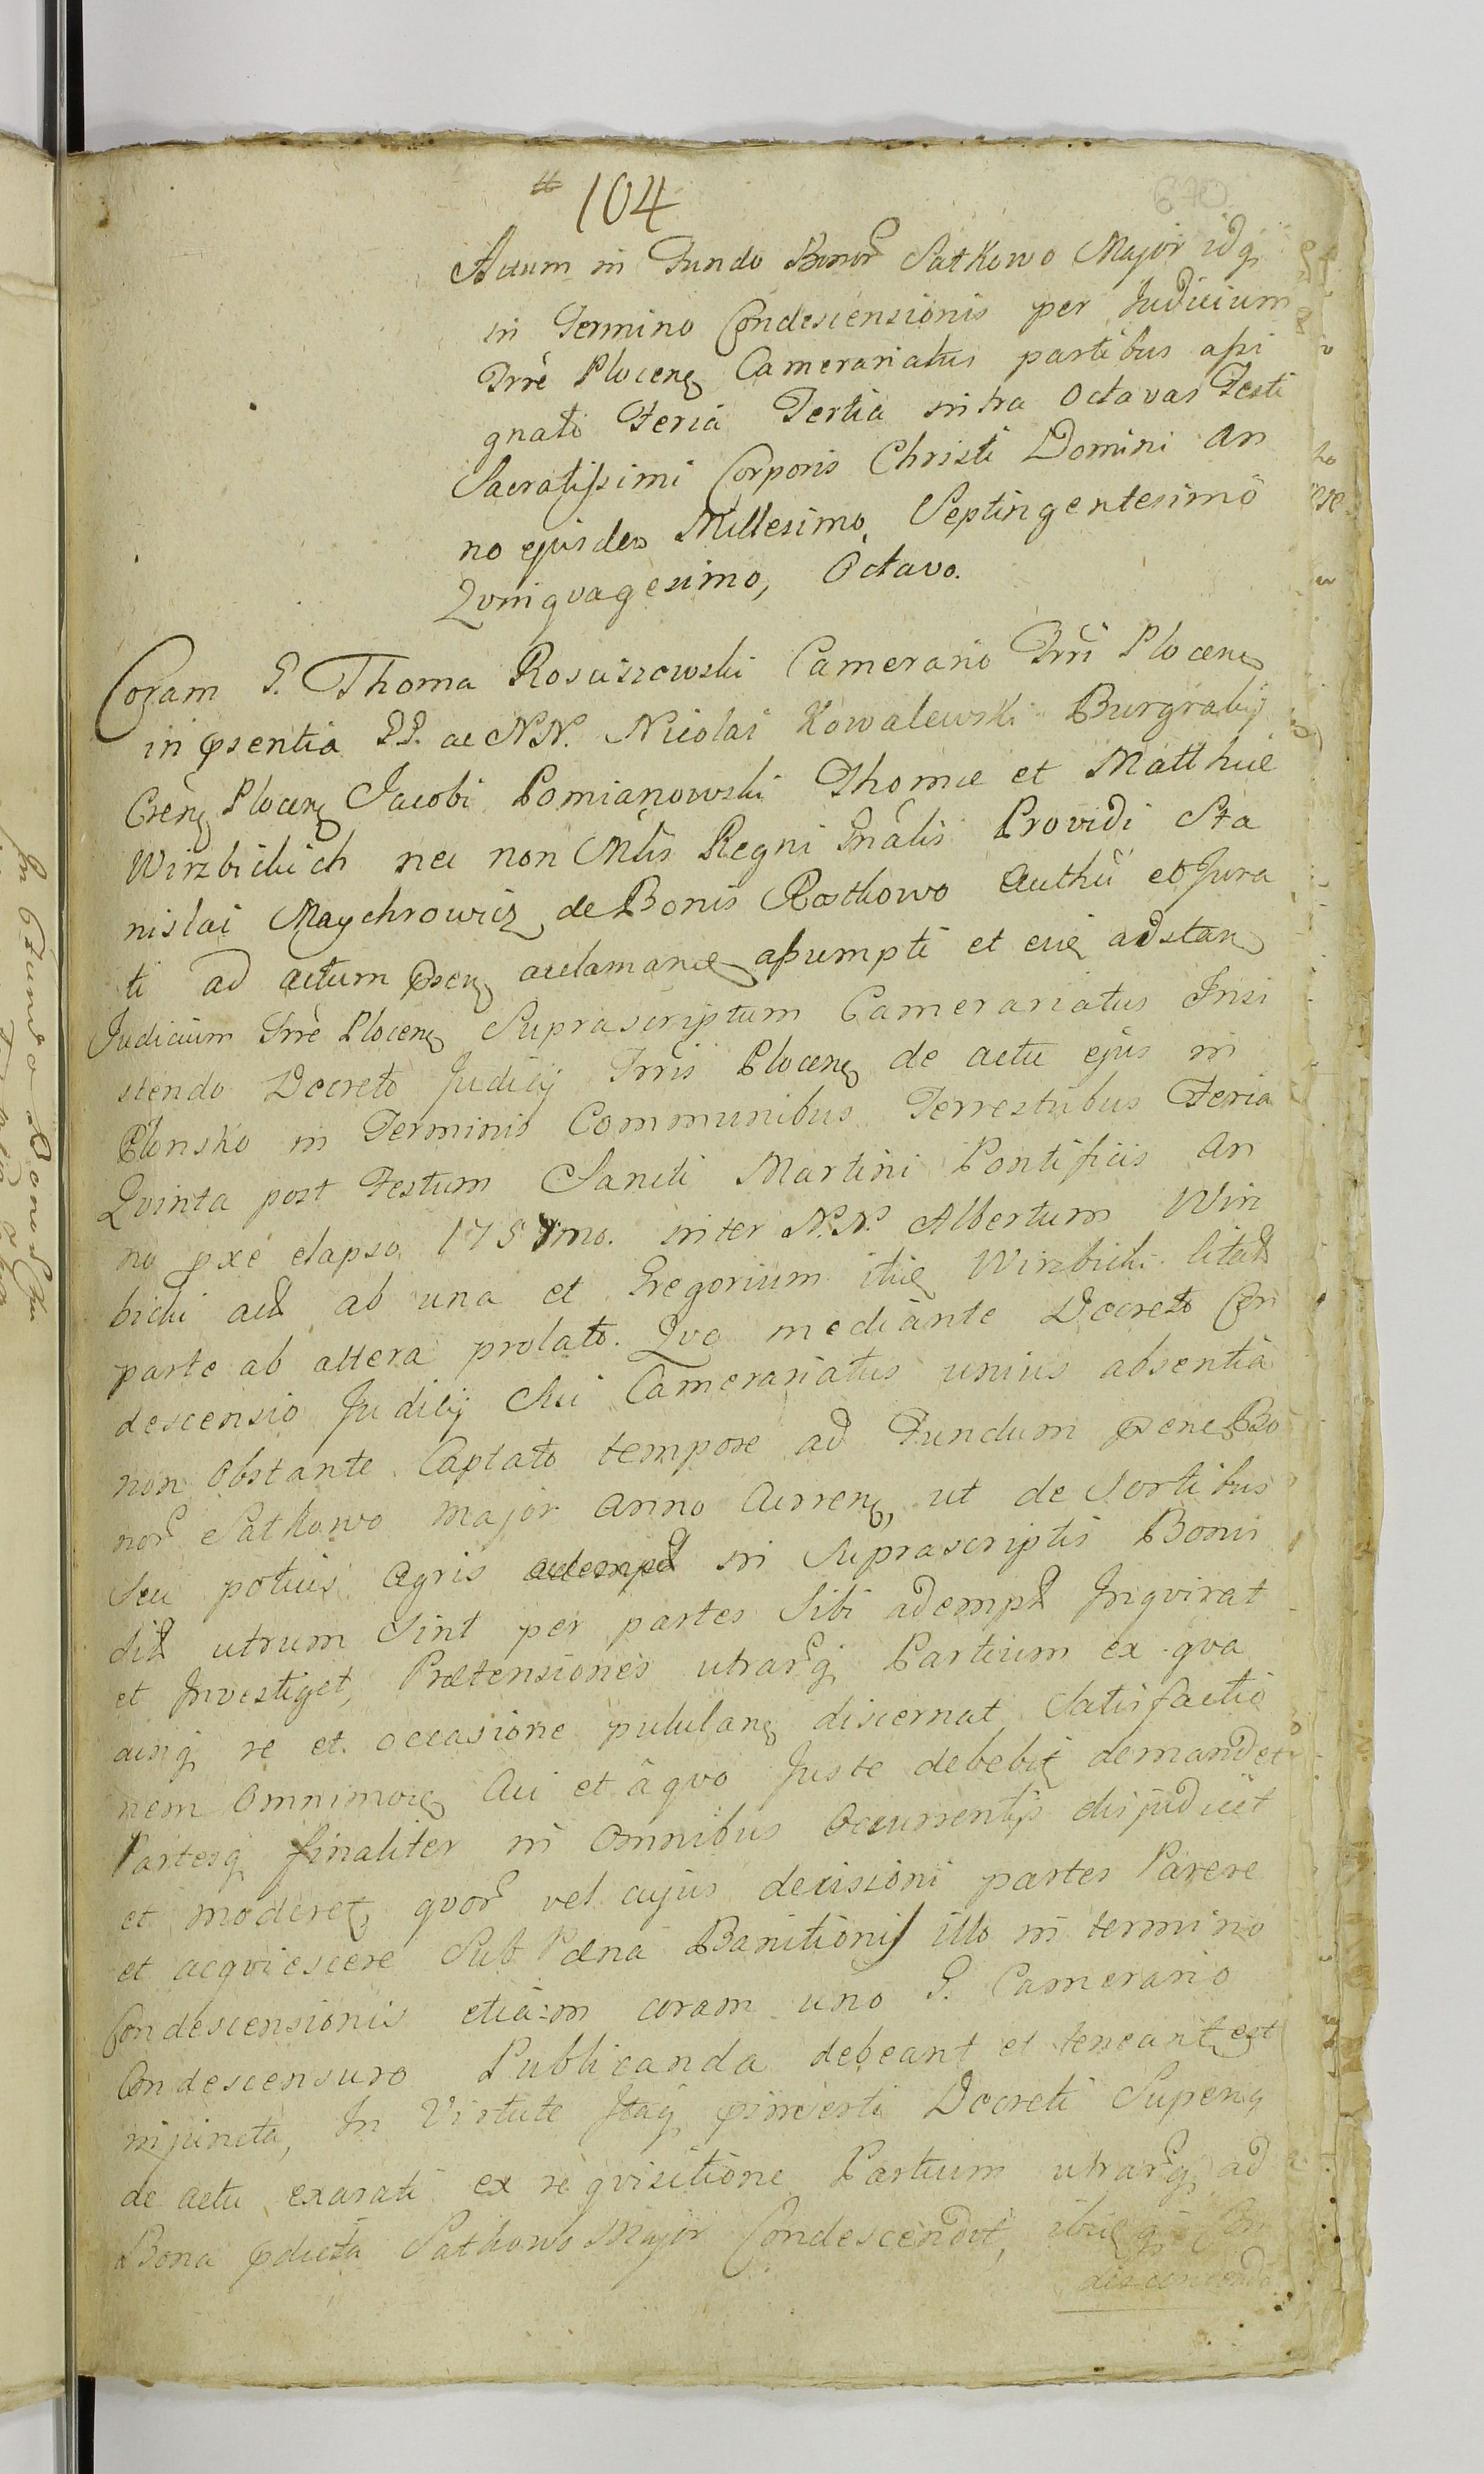 # 104
670
Actum in Fundo Bonor Satkowo Major idq
in Termino Condescensionis per Judicium
Trre Plocenz Camerariatus partibus assi
gnato Feria Tertia intra Octavas Festi
Sacratissimi Corporis Christi Domini An
no ejusdem Millesimo, Septingentesimo
Qvinqvagesimo, Octavo.
Coram G. Thoma Rosciszowski Camerario Trri Plocenz
in psentia GG. ac NN. Nicolai Kowalewski Burgrabij
Crenz Plocenz Jacobi Pomianowski Thomæ et Matthiæ
Wirzbickich nec non Mlis Regni Gnalis Providi Sta
nislai Maychrowicz de Bonis Rostkowo Authci et Jura
ti ad actum psenz acclamanz assumpti et cuiz adstanz
Judicium Trre Plocenz Suprascriptum Camerariatus Insi
stendo Decreto Judicij Trris Plocenz de actu ejus in
Plonsko in Terminis Communibus Terrestribus Feria
Qvinta post Festum Sancti Martini Pontificis An
no pxe elapso 1757mo. inter N.N. Albertum Wirz
bicki act ab una et Gregorium itiz Wirzbicki citat
parte ab altera prolato. Qvo mediante Decreto Con
descensio Judicij Sui Camerariatus unius absentia
non obstante Captato tempore ad Fundum psenz Bo
nor Satkowo major anno currenz, ut de Sortibus
Seu potius agris in Suprascriptis Bonis
sit utrum Sint per partes Sibi adempt Inqvirat
et Investiget, Prætensiones utrarq Partium ex qva
cunq re et occasione pululanz discernat Satisfactio
nem omnimodz cui et à qvo Juste debebit demandet
Partesq finaliter in omnibus occurrentijs disjudicet
et moderet, qvor vel cujus decisioni partes Parere
et acqviescere Sub Pæna Banitionis illo in termino
Condescensionis etiam coram uno G. Camerario
Condescensuro Publicanda debeant et teneant est
injuncta, In Virtute Itaq pinserti Decreti Superiq
de actu exarati ex reqvisitione Partium utrarq ad
Bona pdicta Satkowo Major Condescendit, ibiq Con
descendendo